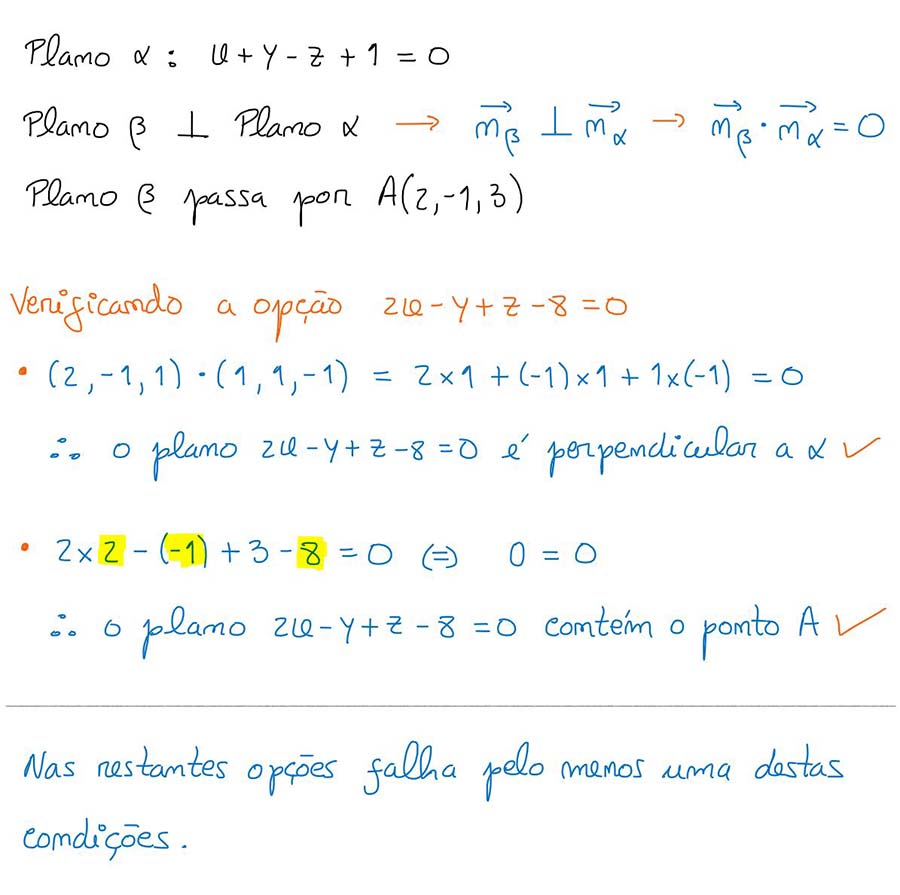 Plano α : x + y - z + 1 = 0
Plano β ⊥ Plano α → n⃗β ⊥ n⃗α → n⃗β · n⃗α = 0
Plano β passa por A(2,-1,3)
Verificando a opção 2x - y + z - 8 = 0
• (2,-1,1) · (1,1,-1) = 2×1 + (-1)×1 + 1×(-1) = 0
∴ o plano 2x - y + z - 8 = 0 é perpendicular a α ✓
• 2×2 - (-1) + 3 - 8 = 0 (=) 0 = 0
∴ o plano 2x - y + z - 8 = 0 contém o ponto A ✓
Nas restantes opções falha pelo menos uma destas
condições.